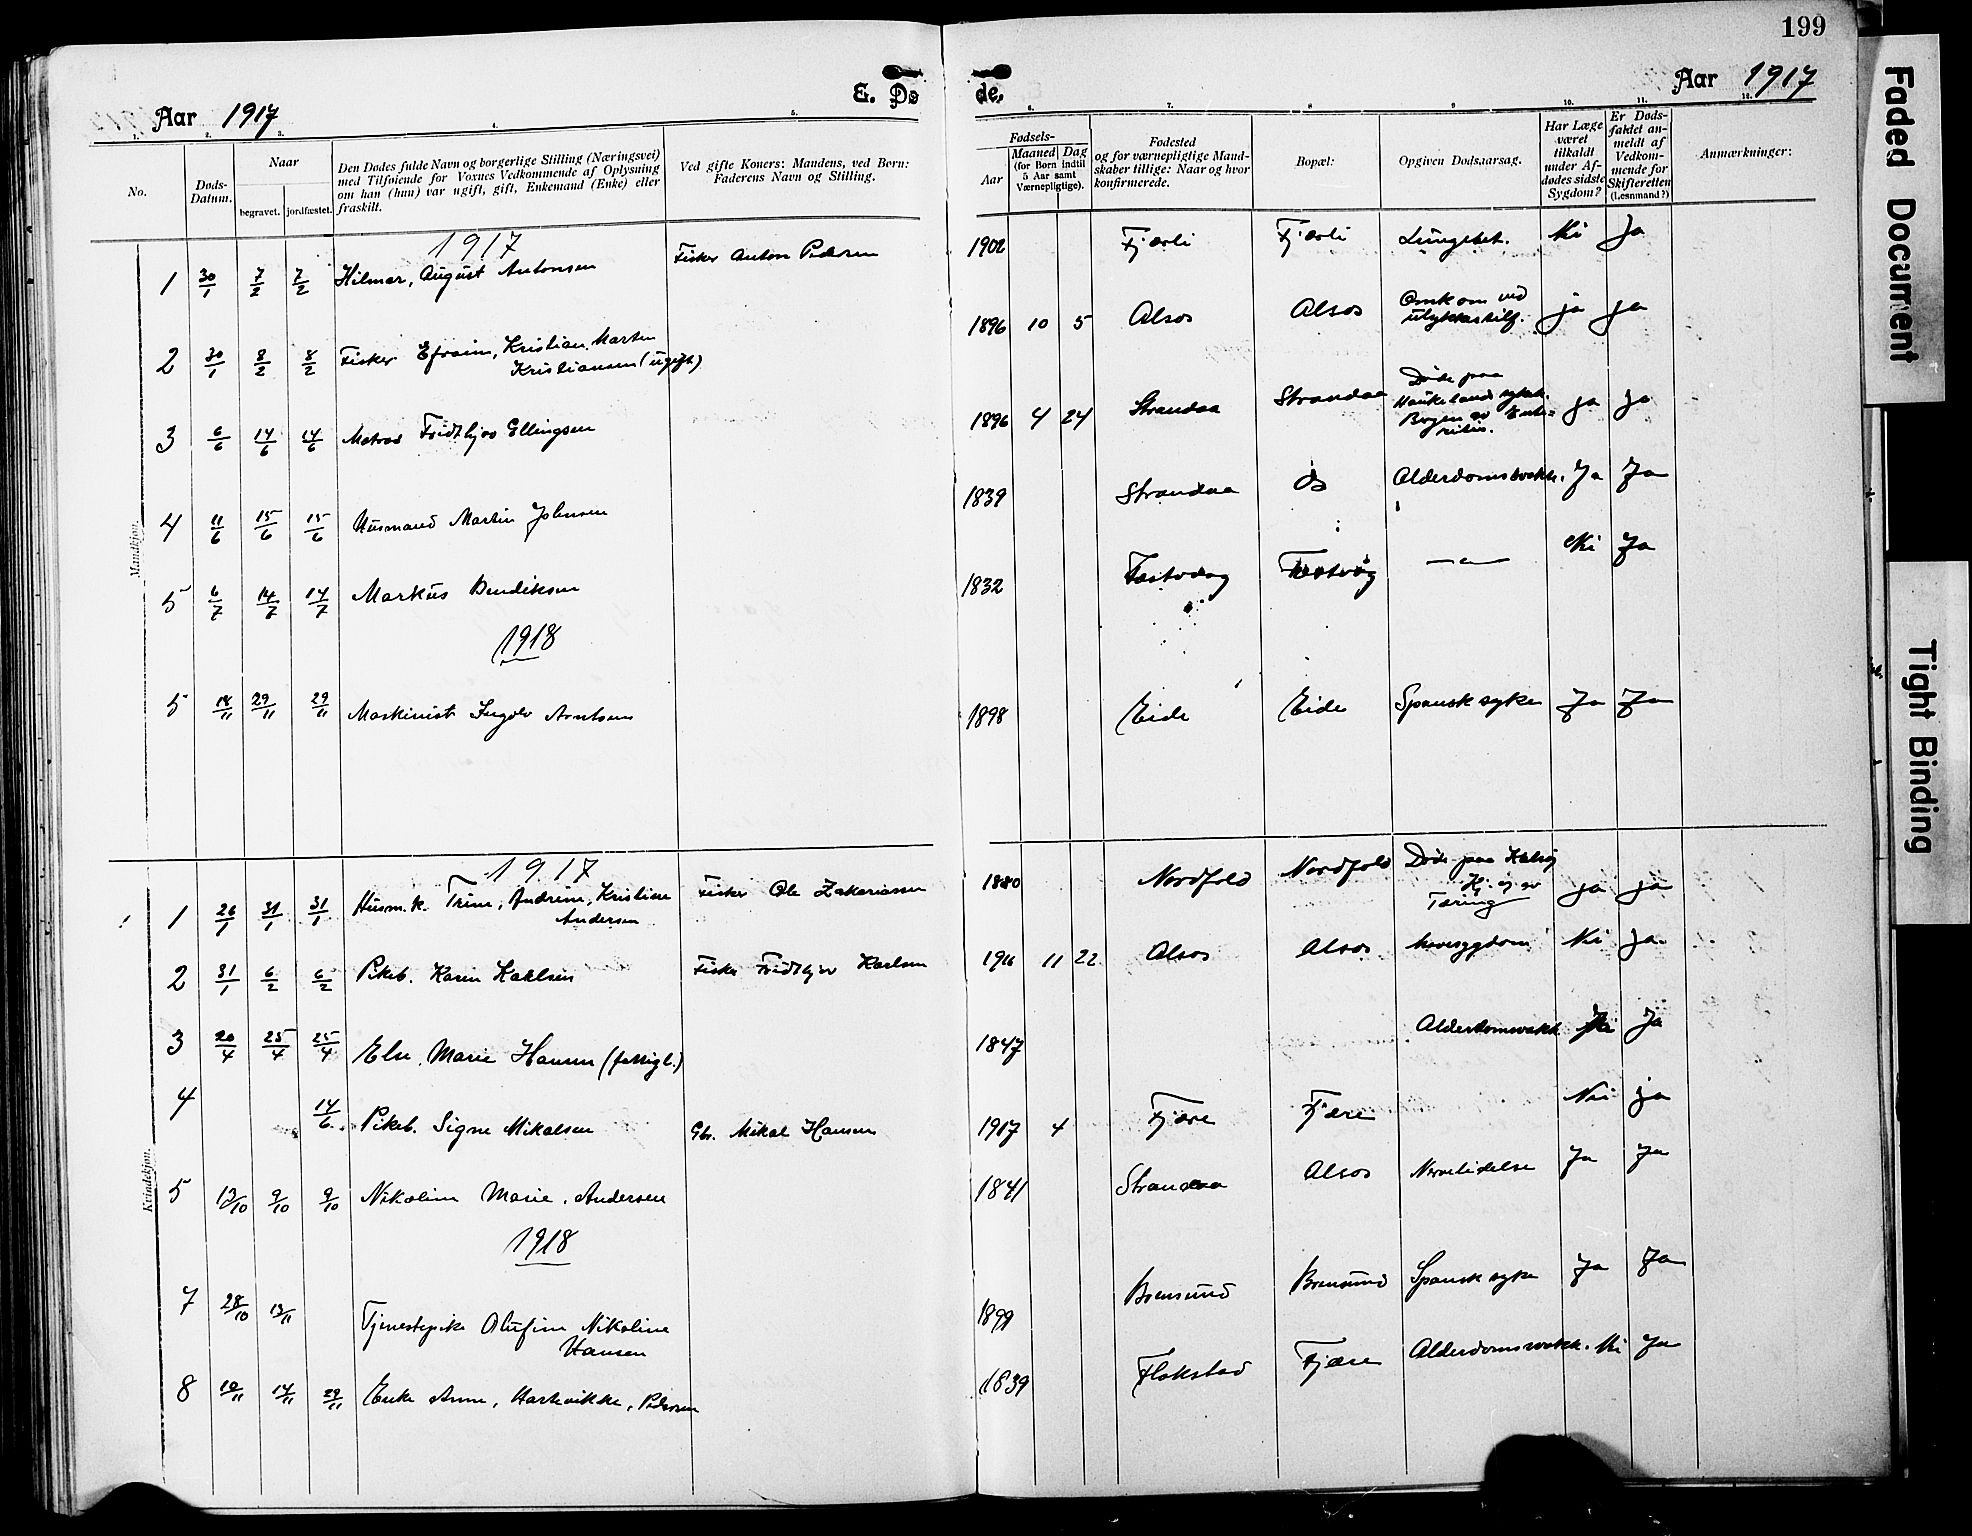 199
Aar 1917
E. Dø
de.
Aar 1917
1. 2. 3. 4. 5. 6. 7. 8 9 10. 11. 12.
No.
Døds-
Datum.
Naar
begravet. jordfæstet.
Den Dødes fulde Navn og borgerlige Stilling (Næringsvei)
med Tilføiende for Voxnes Vedkommende af Oplysning
om han (hun) var ugift, gift, Enkemand (Enke) eller
fraskilt.
Ved gifte Koner: Mandens, ved Børn:
Faderens Navn og Stilling.
Fødsels-
Aar
Maaned Dag
(for Børn indtil
5 Aar samt
Værnepligtige).
Fødested
og for værnepligtige Mand-
skaber tillige: Naar og hvor
konfirmerede.
Bopæl:
Opgiven Dødsaarsag.
Har Læge
været
tilkaldt
under Af-
dødes sidste
Sygdom?
Er Døds-
faldet an-
meldt af
Vedkom-
mende for
Skifteretten
(Lensmand?)
Anmærkninger:
Mandkjøn.
1917
1 30/1 7/2 7/2 Hilmar, August Antonsen Fisker Anton Pedersen 1902 Fjærli Fjærli Lungebet. Nei Ja
2 30/1 8/2 8/2 Fisker Efraim, Kristian, Marten
Kristiansen (ugift) 1896 10 5 Alsos Alsos Omkom ved
ulykkestilf. ja ja
3 6/6 14/6 14/6 Matros Fridthjov Ellingsen 1896 4 24 Strandaa Strandaa Døde paa
Haukeland sykeh.
Bergen av
ja ja
4 11/6 15/6 15/6 Husmand Martin Johnsen 1839 Strandaa do Alderdomssvakh. Ja Ja
5 6/7 14/7 14/7 Markus Bendiksen 1832 Festvaag Festvåg —„— Nei Ja
1918
5 18/11 29/11 29/11 Maskinist Ingolv Arntsen 1898 Eide Eide Spansk syke Ja Ja
Kvindekjøn.
1917
1 26/1 31/1 31/1 Husm.k. Trine, Andrine, Kristine
Andersen Fisker Ole Zakariassen 1880 Nordfold Nordfold Døde paa
av
Tæring ja ja
2 31/1 6/2 6/2 Pikeb. Karen Karlsen Fisker Fridthjov Karlsen 1911 11 22 Alsos Alsos Mavesygdom Nei ja
3 20/4 25/4 25/4 Else, Marie Hansen (fattigl.) 1847 Alderdomssvakh. Nei Ja
4 14/6 Pikeb. Signe Mikalsen Gbr. Mikal Hansen 1917 4 Fjære Fjære Nei ja
5 9/10 9/10 Nikoline Marie, Andersen 1841 Strandaa Alsos Nervelidelse Ja Ja
1918
7 28/10 13/11 Tjenestepike Olufine Nikoline
Hansen 1899 Brensund Brensund Spansk syke Ja Ja
8 10/11 14/11 29/11 Enke Anne, Hartvikke, Pedersen 1839 Flakstad Fjære Alderdomssvakh. Nei Ja
Faded Document
Tight Binding